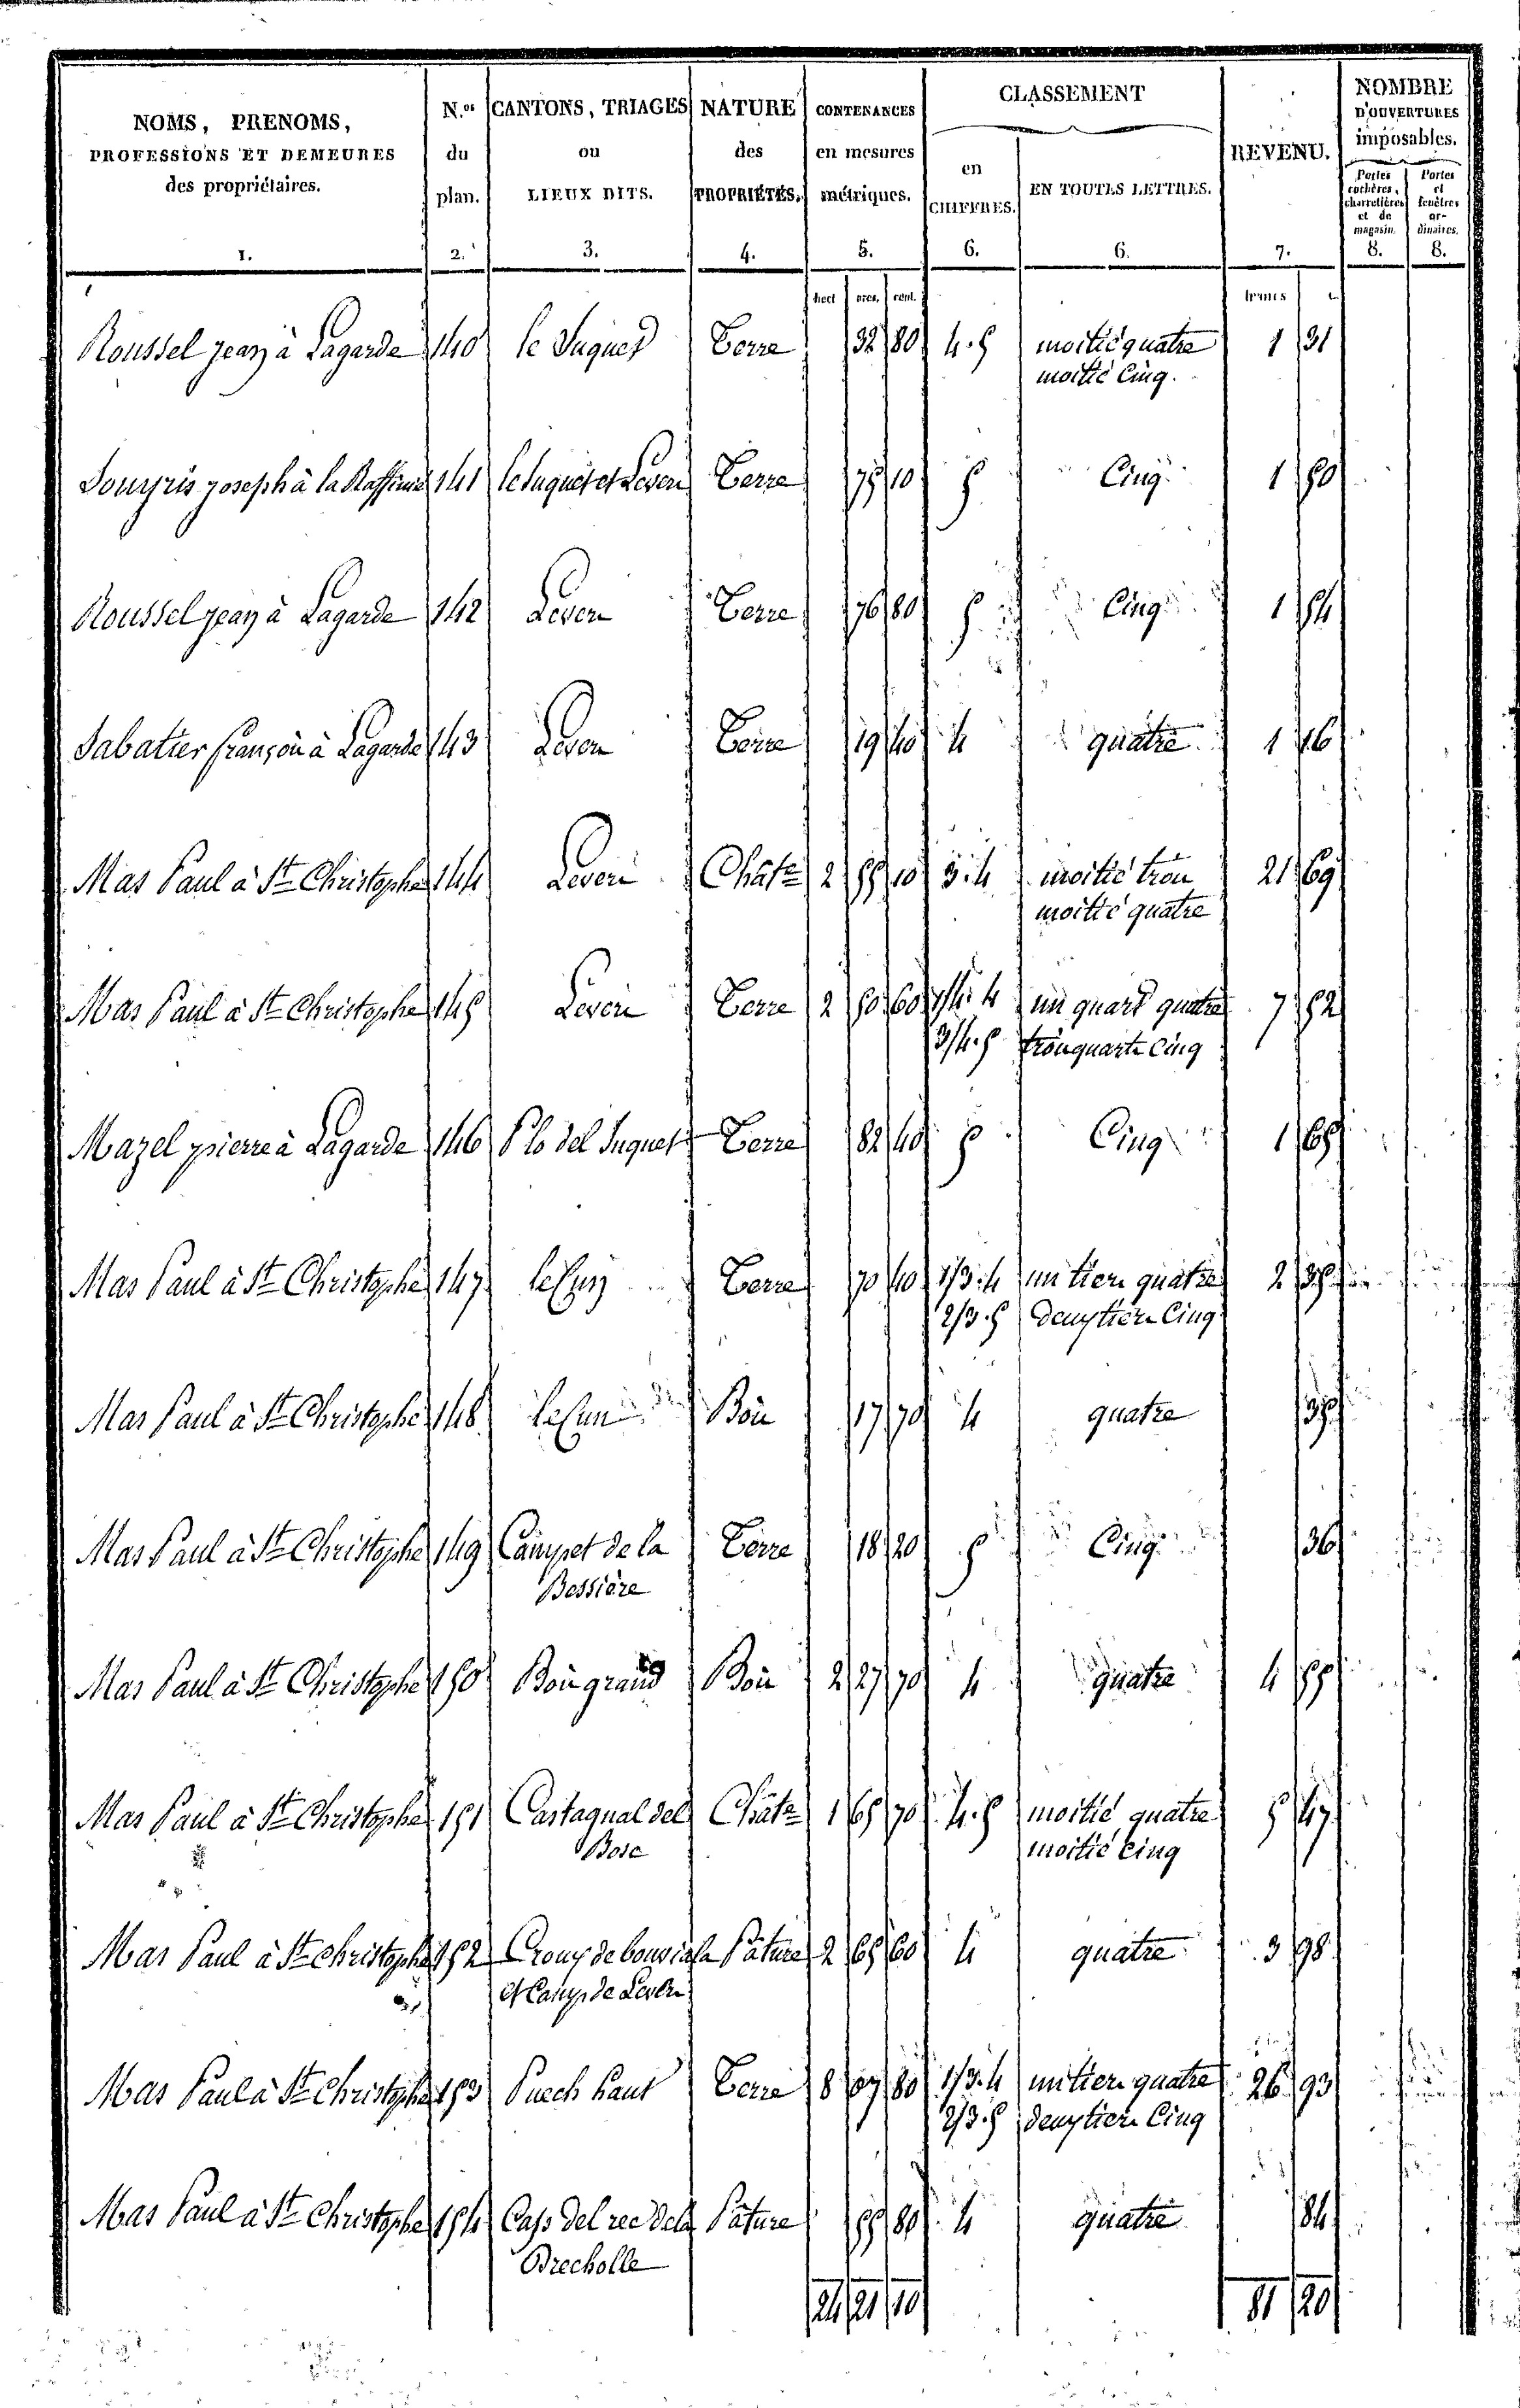 NOMS, PRENOMS,
PROFESSIONS ET DEMEURES
des propriétaires.
1.
N.os
du
plan.
2.
CANTONS, TRIAGES
ou
LIEUX DITS.
3.
NATURE
des
PROPRIÉTÉS.
4.
CONTENANCES
en mesures
métriques.
5.
CLASSEMENT
en
CHIFFRES.
6.
EN TOUTES LETTRES.
6.
REVENU.
7.
NOMBRE
D'OUVERTURES
imposables.
Portes
cochères,
charretières
et de
magasin.
8.
Portes
et
fenêtres
or-
dinaires.
8.
hect ares. cent. francs c.
Roussel jean à Lagarde 140 le Suquet Terre 32 80 4.5 moitié quatre 1 31
moitié Cinq.
Souyris joseph à la 141 le Suquet et Leven Terre 75 10 5 Cinq. 1 50
Roussel jean à Lagarde 142 Leven Terre 76 80 5 Cinq 1 54
Sabatier françois à Lagarde 143 Leven Terre 19 40 4 quatre 1 16
Mas Paul à St Christophe 144 Leven Chât 2 55 10 3.4 moitié trois 21 69
moitié quatre
Mas Paul à St Christophe 145 Leven Terre 2 50 60 1/4.4 un quart quatre 7 52
3/4.5 trois quarts Cinq
Mazel pierre à Lagarde 146 P lo del Suquet Terre 82 40 5 Cinq 1 65
Mas Paul à St Christophe 147 Terre 70 40 1/3.4 un tiers quatre 2 35
2/3.5 deux tiers Cinq
Mas Paul à St Christophe 148 Bois 17 70 4 quatre 35
Mas Paul à St Christophe 149 Campet de la Terre 18 20 5 Cinq 36
Bessière
Mas Paul à St Christophe 150 Bois grand Bois 2 27 70 4 quatre 4 55
Mas Paul à St Christophe 151 Castagnal del Chât 1 65 70 4.5 moitié quatre 5 47
Bosc moitié Cinq
Mas Paul à St Christophe 152 Croux de Pature 2 65 60 4 quatre 3 98
et Camp de Leven
Mas Paul à St Christophe 153 Puech haut Terre 8 07 80 1/3.4 un tiers quatre 26 93
2/3.5 deux tiers Cinq
Mas Paul à St Christophe 154 Cass del rec de la Pature 55 80 4 quatre 84
Brecholle
24 21 10 81 20